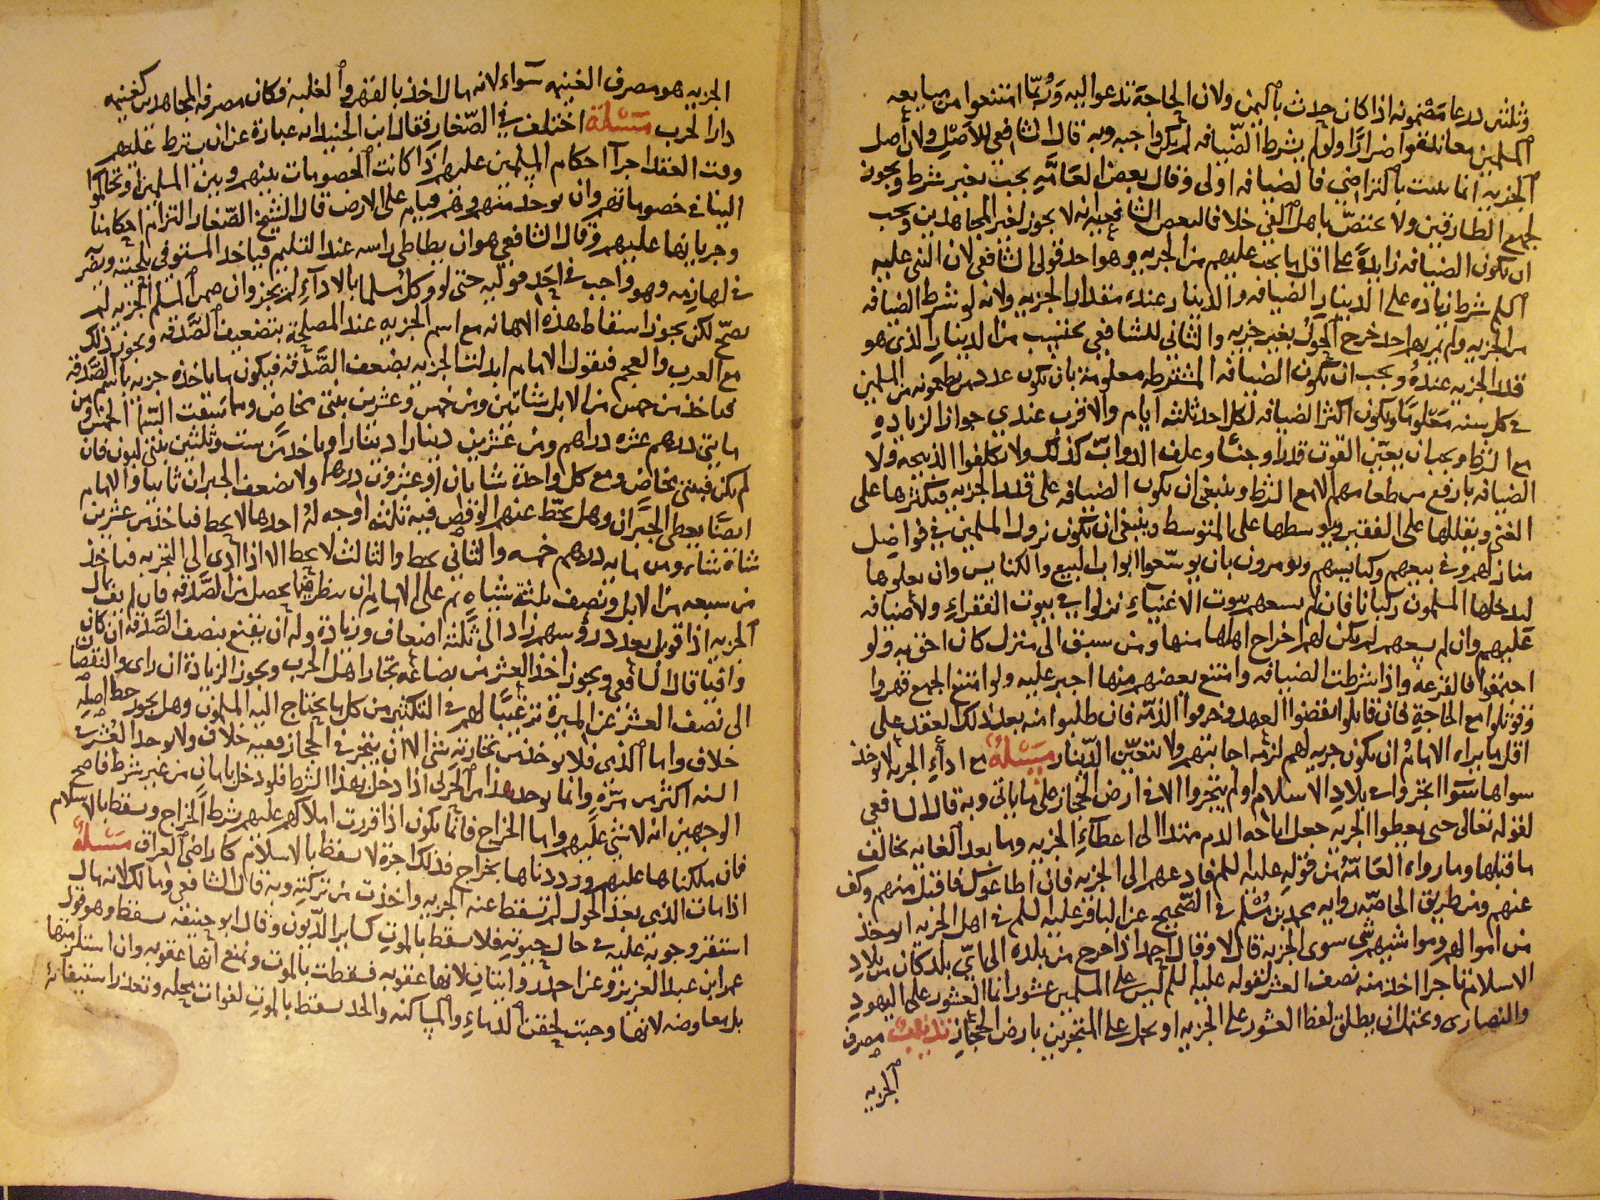 وثلثين درعا مضمونه اذا كان حدث باليمن ولان الحاجة تدعوا اليه وربما امتنعوا من مبايعه
المسلمين معاندة او اضرارا ولو لم يشرط الضيافه لم يكن واجبه وبه قال الشافعي للاصل ولان اصل
الجزيه انما يثبت بالتراضي فالضيافه اولى وقال بعض العامة يجب بغير شرط ويجوز
لجميع الطارقين ولا يختص باهل الفي خلافا لبعض الشافعيه انه لا يجوز لغير المجاهدين ويجب
ان يكون الضيافه زايدة على اقل ما يجب عليهم من الجزيه وهو احد قولي الشافعي لان النبي عليه
السلم شرط زياده على الدينار الضيافه والدينار عنده مقدار الجزيه ولانه لو شرط الضيافه
من الجزيه ولم يمر بهم احد خرج الحول بغير جزيه والثاني للشافعي يحتسب من الدينار الذي هو
قدر الجزيه عنده ويجب ان تكون الضيافه المشترطه معلومة بان يكون عدد من يطعمونه من المسلمين
في كل سنه معلوما ويكون اكثر الضيافه لكل احد ثلثه ايام والاقرب عندي جواز الزياده
مع الشرط ويجب ان يعين القوت قدرا وجنسا وعلف الدواب كذلك ولا يكلفوا الذبيحه ولا
الضيافه بارفع من طعامهم الا مع الشرط وينبغي ان يكون الضيافه على قدر الجزيه فيكثرها على
الغني ويقللها على الفقير ويوسطها على المتوسط وينبغي ان تكون نزول المسلمين في فواضل
منازلهم وفي بيعهم وكنايسهم ويومرون بان يوسعوا ابواب البيع والكنايس وان يعلوها
ليدخلها المسلمون ركبانا فان لم يسعهم بيوت الاغنياء نزلوا في بيوت الفقراء ولا ضيافه
عليهم وان لم يسعهم لم يكن لهم اخراج اهلها منها ومن سبق الى منزل كان احق به ولو
اجتمعوا فالقرعه واذا شرطت الضيافه وامتنع بعضهم منها اجبر عليه ولو امتنع الجميع قهروا
وقوتلوا مع الحاجة فان قاتلوا نقضوا العهد وخرموا الذمه فان طلبوا منه بعد ذلك العقد على
اقل ما يراه الامام ان يكون جزيه لهم لزمه اجابتهم ولا يتعين الدينار مسئلة مع اداء الجزيه لا يوخذ
سواها سواء اتجروا في بلاد الاسلام او لم يتجروا الا في ارض الحجاز على ما ياتي وبه قال الشافعي
لقوله تعالى حتى يعطوا الجزيه جعل اباحه الدم ممتدا الى اعطاء الجزيه وما بعد الغايه يخالف
ما قبلها وما رواه العامة من قوله عليه السلم فادعهم الى الجزيه فان اطاعوك فاقبل منهم وكف
عنهم ومن طريق الخاصه روايه محمد بن مسلم في الصحيح عن الباقر عليه السلم في اهل الجزيه ايوخذ
من اموالهم ومواشيهم شي سوى الجزيه قال لا وقال احمد اذا خرج من بلده الى اي بلد كان من بلاد
الاسلام تاجرا اخذ منه نصف العشر لقوله عليه السلم ليس على المسلمين عشور انما العشور على اليهود
والنصارى ويحتمل ان يطلق لفظ العشور على الجزيه او يحمل على المتجرين بارض الحجاز تذنيب مصرف
الجزيه
الجزيه هو مصرف الغنيمه سواء لانه مال اخذ بالقهر والغلبه فكان مصرفه المجاهدين كغنيمه
دار الحرب مسئلة اختلف في الصغار فقال ابن الجنيد انه عبارة عن ان يشترط عليهم
وقت العقد اجراء احكام المسلمين عليهم اذا كانت الخصومات بينهم وبين المسلمين او تحاكموا
الينا في خصوماتهم وان توخذ منهم وهم قيام على الارض قال الشيخ الصغار التزام احكامنا
وجريانها عليهم وقال الشافعي هو ان يطاطى راسه عند التسليم فياخذ المستوفي بلحيته ويضرب
في لهازمه وهو واجب في احد قوليه حتى لو وكل مسلما بالاداء لم يجز وان ضمن المسلم الجزيه لم
يصح لكن يجوز اسقاط هذه الاهانه مع اسم الجزيه عند المصلحة بتضعيف الصدقه ويجوز ذلك
مع العرب والعجم فيقول الامام ابدلت الجزيه بضعف الصدقه فيكون ما ياخذه جزيه باسم الصدقه
فياخذ من خمس من الابل شاتين ومن خمس وعشرين بنتي مخاض ومما سقت السماء الخمس ومن
مايتي درهم عشره دراهم ومن عشرين دينارا دينارا وياخذ من ست وثلثين بنتي لبون فان
لم يكن فبنتي مخاض ومع كل واحدة شاتان او عشرون درهما ولا يضعف الجبران ثانيا والامام
ايضا يعطي الجبران وهل يحط عنهم الوقص فيه ثلثه اوجه له احدها لا يحط فياخذ من عشرين
شاة شاة ومن مايه درهم خمسه والثاني يحط والثالث لا يحط الا اذا ادى الى التجزيه فياخذ
من سبعه من الابل ونصف ثلثه شياه ثم على الامام ان ينظر فيما يحصل من الصدقه فان لم يف بمال
الجزيه اذا قوبل بعدد روسهم زاد الى ثلثه اضعاف وزيادة وله ان يقنع بنصف الصدقه ان كان
وافيا قال الشافعي ويجوز اخذ العشر من بضاعه تجار اهل الحرب ويجوز الزيادة ان راى والنقصان
الى نصف العشر عن الميرة ترغيبا لهم في التكثير من كل ما يحتاج اليه المسلمون وهل يجوز حط اصله
خلاف واما الذمي فلا يوخذ من تجارته شي الا ان يتجر في الحجاز ففيه خلاف ولا يوخذ العشر في
السنه اكثر من مرة وانما يوخذ هذا من الحربي اذا دخل بهذا الشرط فلو دخل بامان من غير شرط فاصح
الوجهين انه لا شي عليهم واما الخراج فانما يكون اذا قررت املاكهم عليهم شرط الخراج ويسقط بالاسلام
فان ملكناها عليهم ورددناها بخراج فذلك اجرة لا يسقط بالاسلام كاراضي العراق مسئلة
اذا مات الذمي بعد الحول لم تسقط عنه الجزيه واخذت من تركته وبه قال الشافعي ومالك لانه مال
استقر وجوبه عليه في حال حيوته فلا يسقط بالموت كساير الديون وقال ابو حنيفه يسقط وهو قول
عمر ابن عبد العزيز وعن احمد روايتان لانها عقوبه فسقطت بالموت ونمنع انها عقوبه وان استلزمتها
بل معاوضه لانها وجبت لحقن الدماء والمساكنه والحد يسقط بالموت لفوات محله وتعذر استيفائه